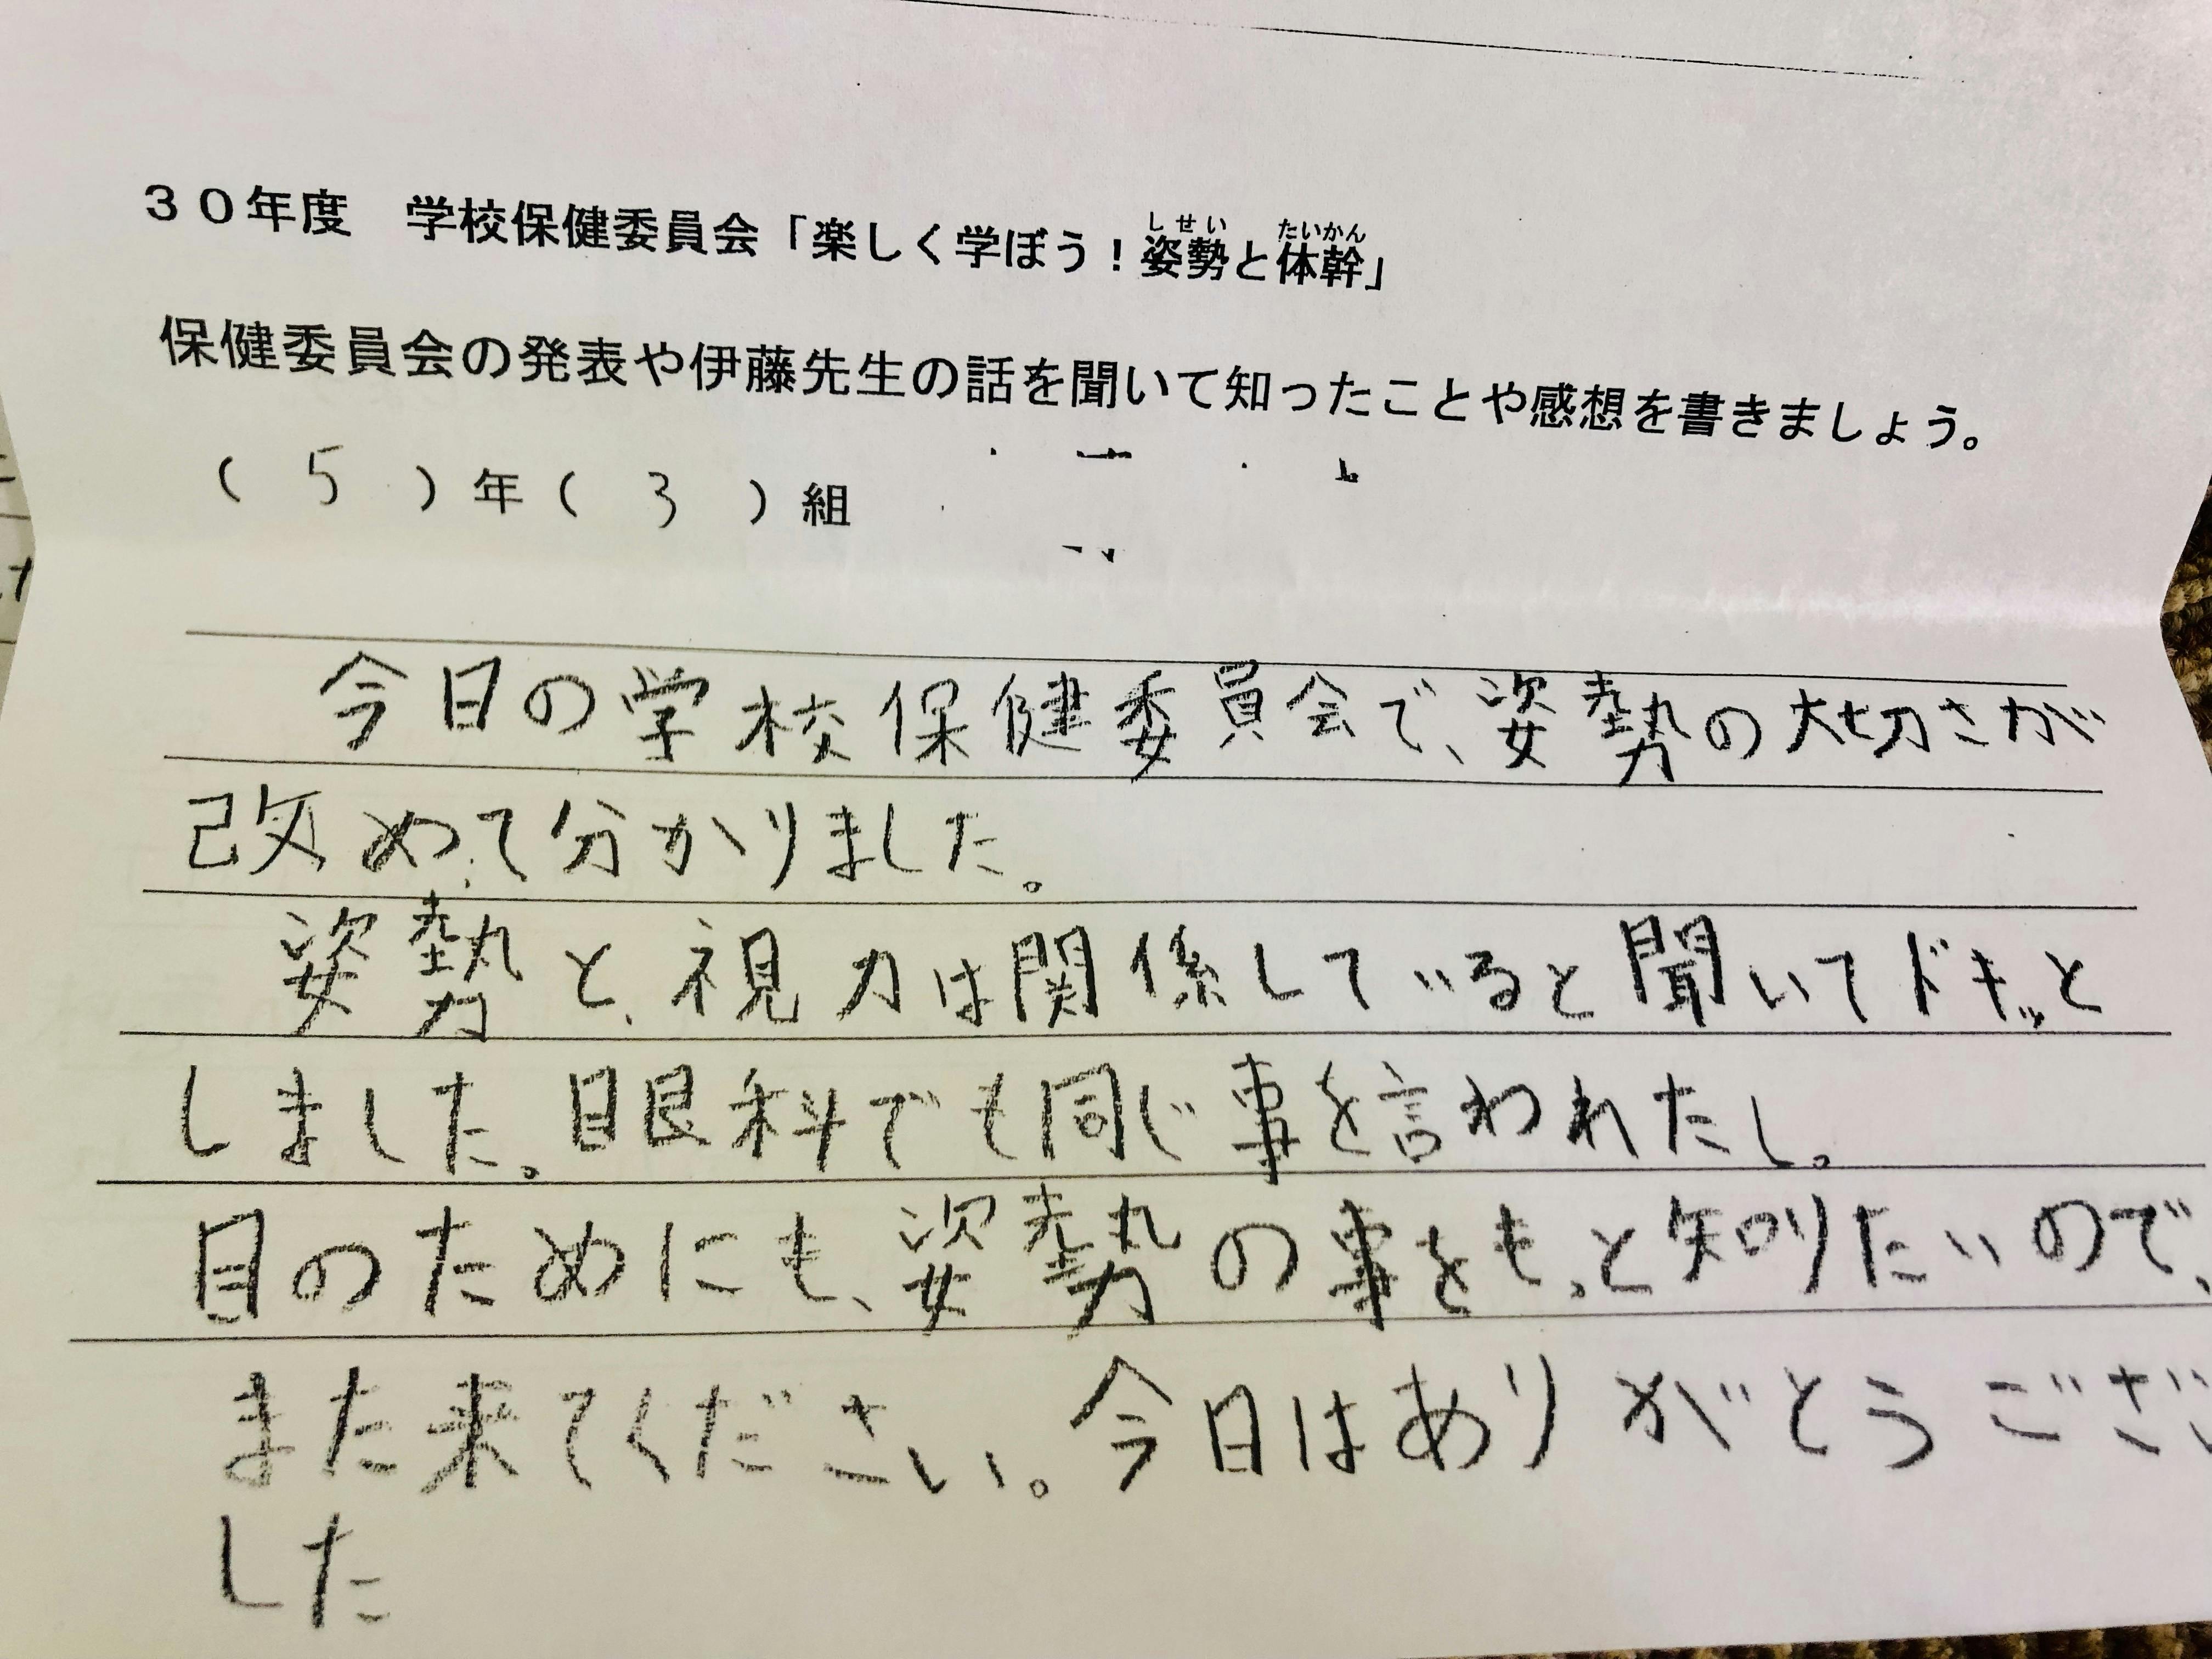 30年度 学校保健委員会「楽しく学ぼう！姿勢と体幹」
しせい たいかん
保健委員会の発表や伊藤先生の話を聞いて知ったことや感想を書きましょう。
（ 5 ）年（ 3 ）組
今日の学校保健委員会で、姿勢の大切さが
改めて分かりました。
姿勢と、視力は関係していると聞いてドキッと
しました。眼科でも同じ事を言われたし。
目のためにも、姿勢の事をもっと知りたいので、
また来てください。今日はありがとうござい
した